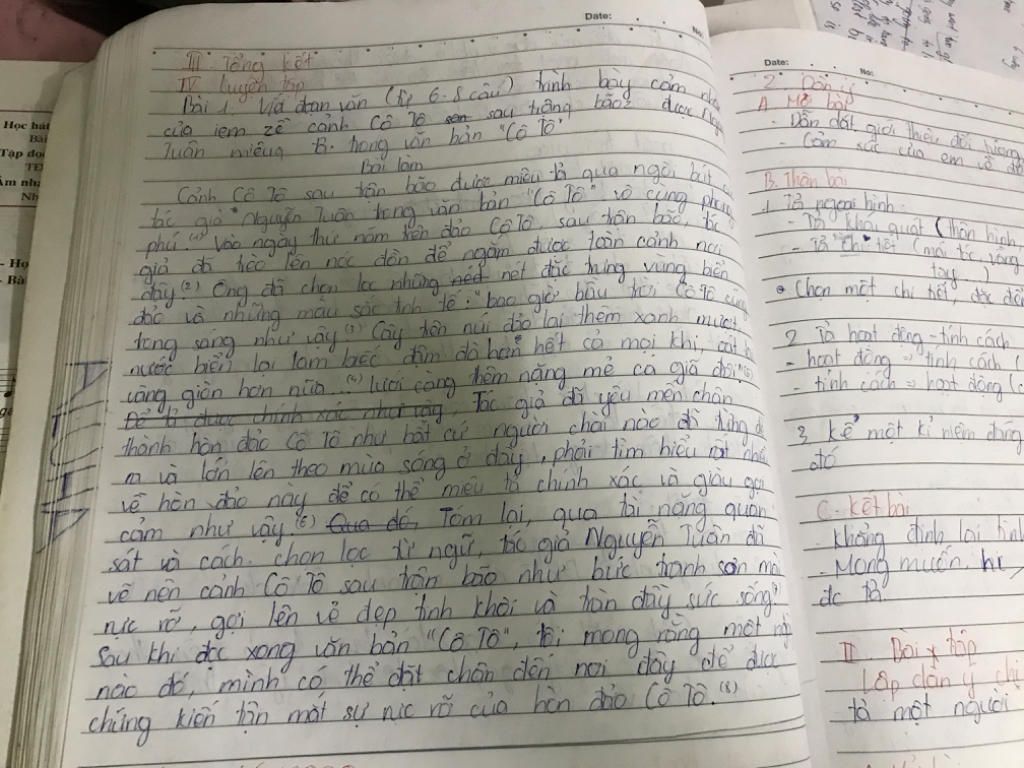 Date:
III Tổng kết
IV Luyện tập
Bài 1. Viết đoạn văn (từ 6-8 câu) trình bày cảm nhận
của em về cảnh Cô Tô sau trông bão được
Tuân miêu tả trong văn bản "Cô Tô"
Bài làm
Cảnh Cô Tô sau trận bão được miêu tả qua ngòi bút
tác giả Nguyễn Tuân trong văn bản "Cô Tô" vô cùng phong
phú.(1) Vào ngày thứ năm trên đảo Cô Tô, sau trận bão, tác
giả đã trèo lên nóc đồn để ngắm được toàn cảnh nơi
đây.(2) Ông đã chọn lọc những nét đặc trưng vùng biển
đảo và những màu sắc tinh tế: "bao giờ bầu trời Cô Tô cũng
trong sáng như vậy (3) Cây trên núi đảo lại thêm xanh mượt,
nước biển lại lam biếc đậm đà hơn hết cả mọi khi, cát lại
vàng giòn hơn nữa.(4) lưới càng thêm nặng mẻ cá giã đôi."(5)
Để tả được chính xác như vậy, Tác giả đã yêu mến chân
thành hòn đảo Cô Tô như bất cứ người chài nào đã từng đẻ
ra và lớn lên theo mùa sóng ở đây, phải tìm hiểu rất nhiều
về hòn đảo này để có thể miêu tả chính xác và giàu gợi
cảm như vậy.(6) Qua đó, Tóm lại, qua tài năng quan
sát và cách chọn lọc từ ngữ, tác giả Nguyễn Tuân đã
vẽ nên cảnh Cô Tô sau trận bão như bức tranh sơn mài
rực rỡ, gợi lên vẻ đẹp tinh khôi và tràn đầy sức sống.
Sau khi đọc xong văn bản "Cô Tô", tôi mong rằng một ngày
nào đó, mình có thể đặt chân đến nơi đây để được
chứng kiến tận mắt sự rực rỡ của hòn đảo Cô Tô.(8)
Date:
No:
2. Dàn ý
A. Mở bài
- Dẫn dắt, giới thiệu đối tượng
- Cảm xúc của em về
B. Thân bài
1. Tả ngoại hình:
- Tả khái quát (thân hình,
- Tả chi tiết (mái tóc, vầng
tay)
Chọn một chi tiết, đặc
2. Tả hoạt động - tính cách
- hoạt động => tính cách (
- tính cách => hoạt động (
3. Kể một kỉ niệm đáng
đó
C. Kết bài
- Khẳng định lại tình
- Mong muốn,
đc tả.
II. Bài tập
Lập dàn ý chi
tả một người
Học hát
Bài
Tập đọ